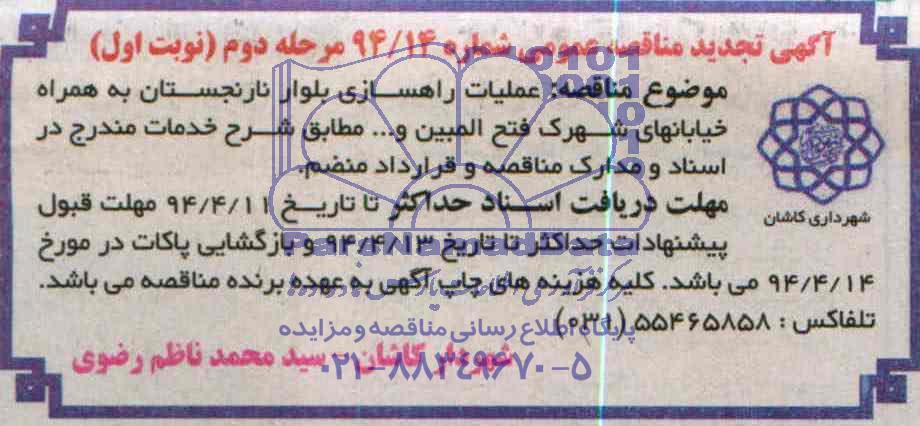 آگهی تجدید مناقصه عمومی شماره ۹۴/۱۴ مرحله دوم (نوبت اول)
موضوع مناقصه: عملیات راهسازی بلوار نارنجستان به همراه
خیابانهای شهرک فتح المبین و... مطابق شرح خدمات مندرج در
اسناد و مدارک مناقصه و قرارداد منضم.
شهرداری کاشان
مهلت دریافت اسناد حداکثر تا تاریخ ۹۴/۴/۱۱ مهلت قبول
پیشنهادات حداکثر تا تاریخ ۹۴/۴/۱۳ و بازگشایی پاکات در مورخ
۹۴/۴/۱۴ می باشد. کلیه هزینه های چاپ آگهی به عهده برنده مناقصه می باشد.
تلفاکس: ۵۵۴۶۵۸۵۸ (۰۳۱)
شهردار کاشان - سید محمد ناظم رضوی
ParsNamadData
پایگاه اطلاع رسانی مناقصه و مزایده
۰۲۱-۸۸۳۴۹۶۷۰-۵